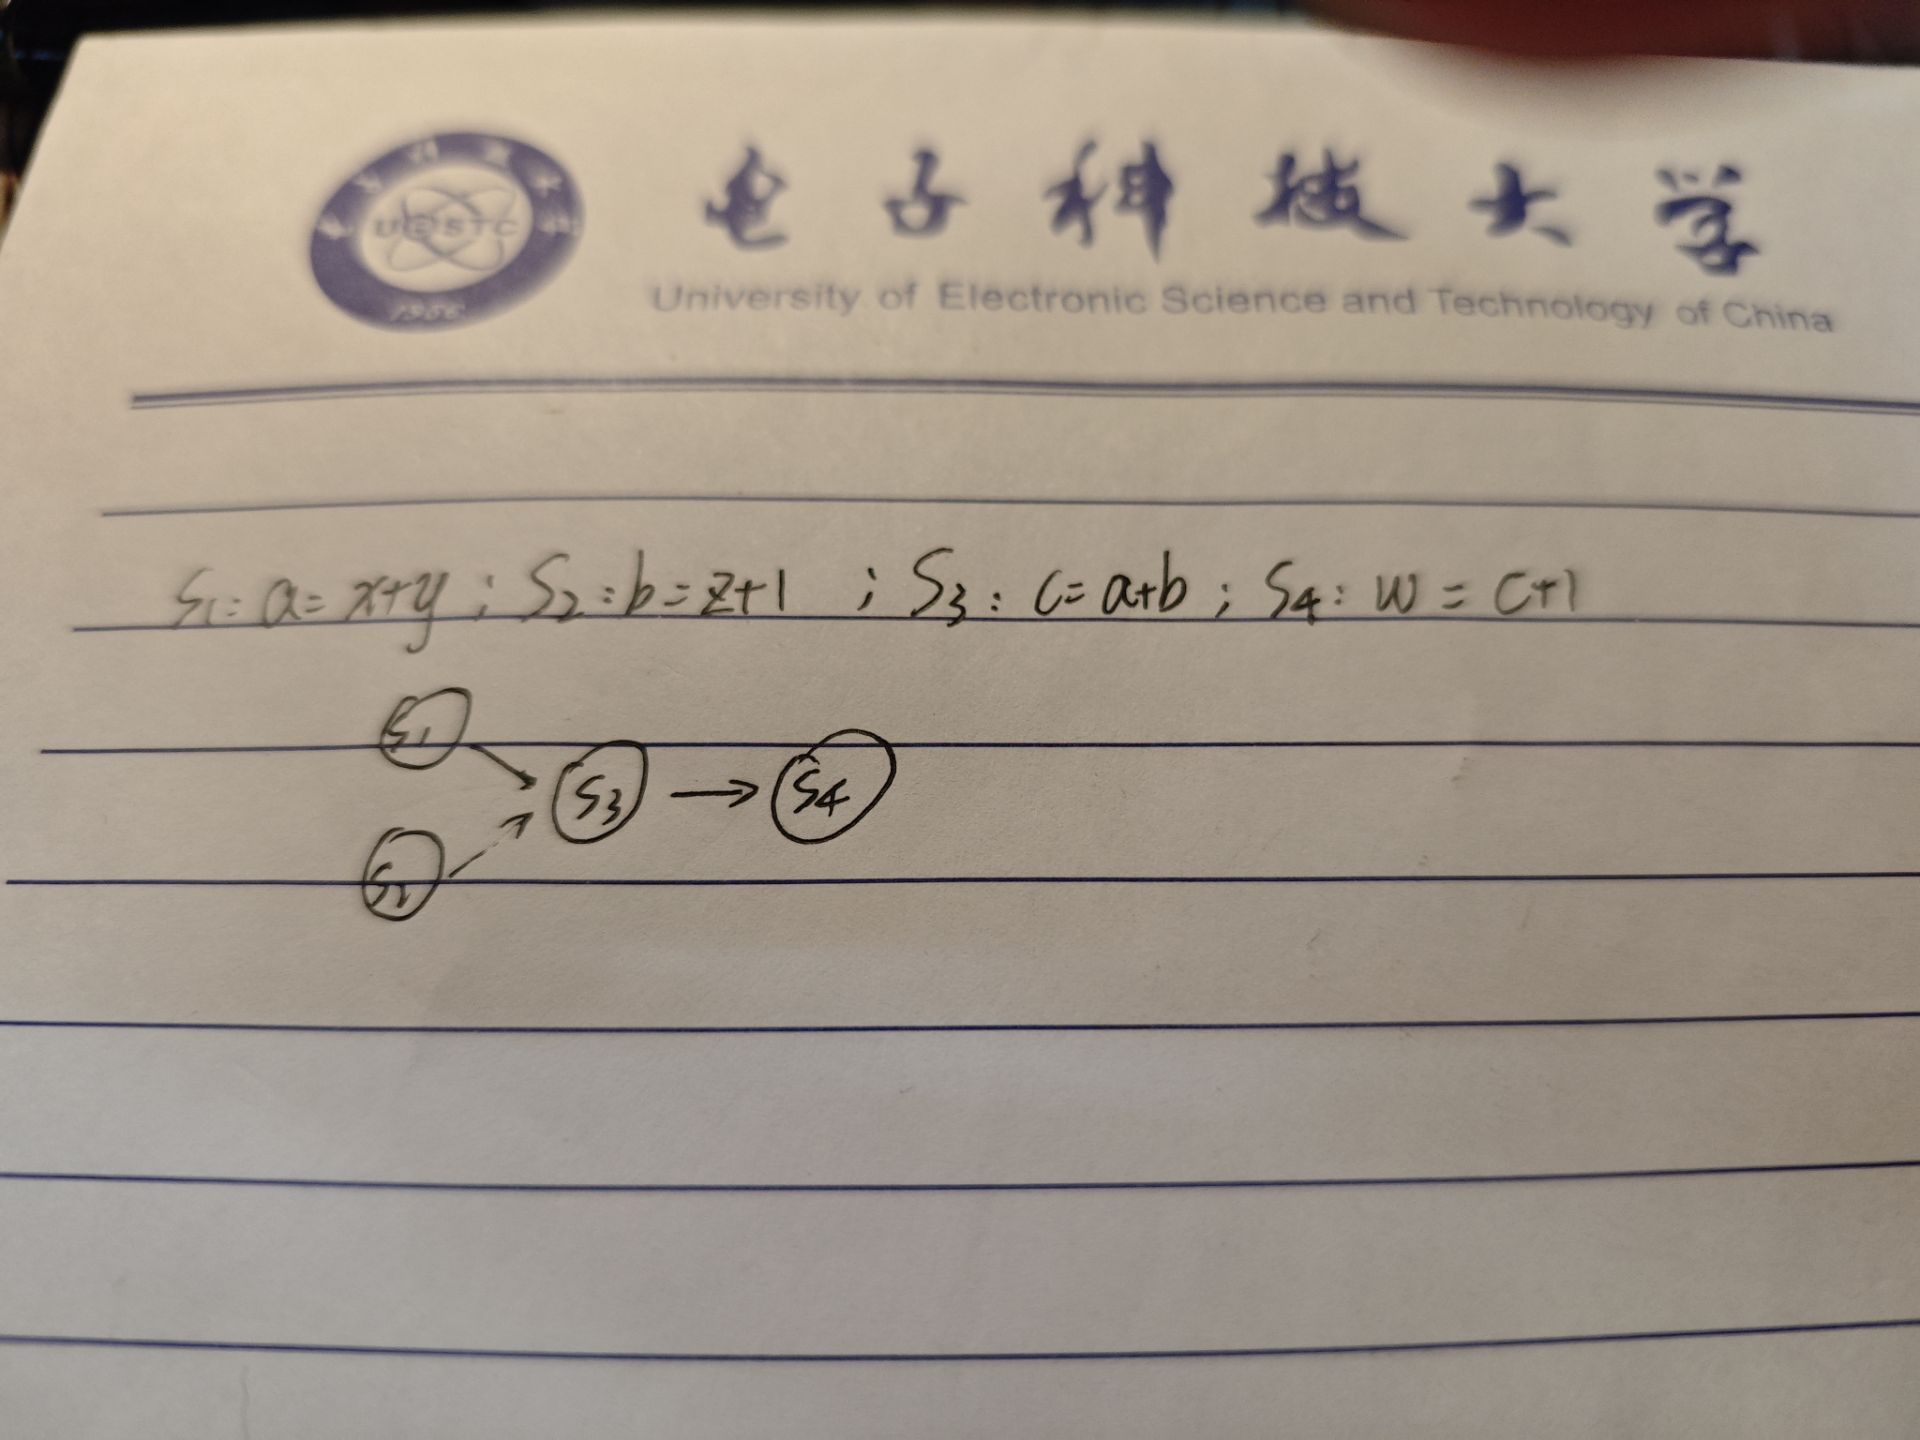 UESTC
1956
电子科技大学
University of Electronic Science and Technology of China
S1: a=x+y; S2: b=z+1 ; S3: c=a+b; S4: w=c+1
S1
S3 → S4
S2